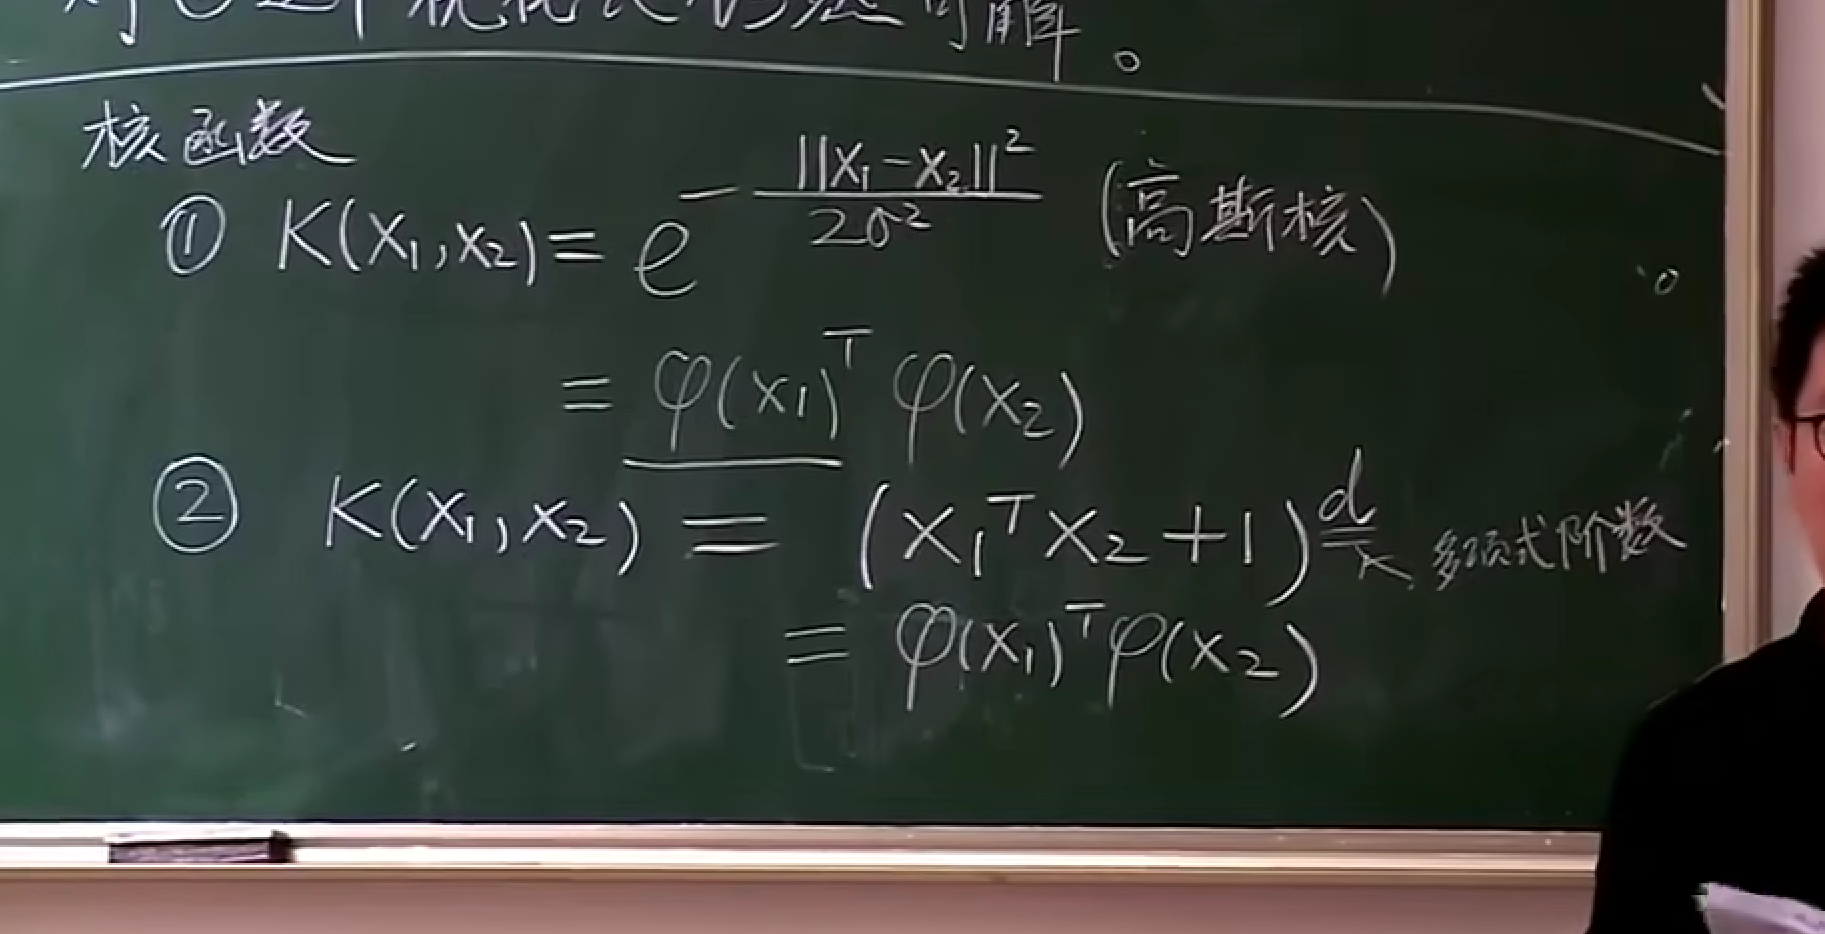 可解。
核函数
① K(x₁,x₂) = e^{-\frac{||x₁-x₂||²}{2σ²}} (高斯核)
= φ(x₁)ᵀ φ(x₂)
② K(x₁,x₂) = (x₁ᵀx₂+1)^d 多项式阶数
= φ(x₁)ᵀφ(x₂)